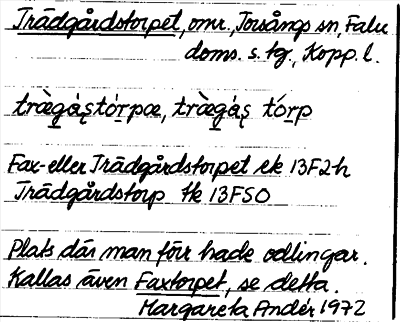 Trädgårdstorpet, omr., Torsångs sn, Falu
doms. s. tg., Kopp. l.
træ̀gá̱ṣtórpæ, træ̀gá̱ṣ tórp
Fax- eller Trädgårdstorpet ek 13F2h
Trädgårdstorp tk 13FSO
Plats där man förr hade odlingar.
Kallas även Faxtorpet, se detta.
Margareta Andér 1972